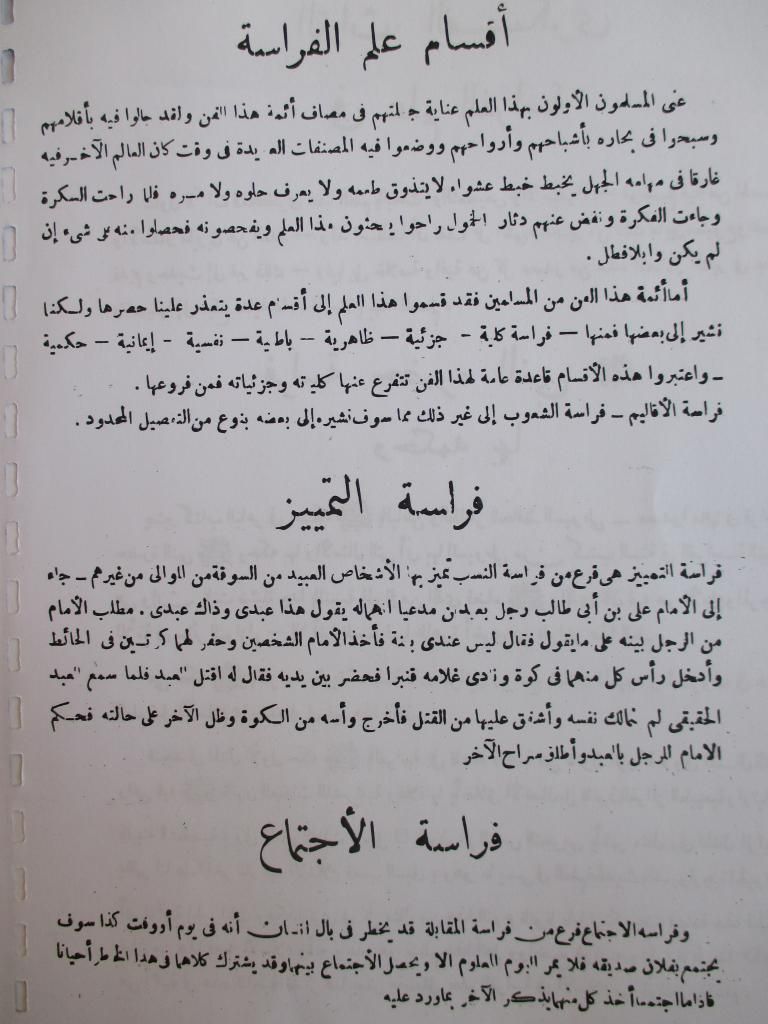 أقسام علم الفراسة
عنى المسلمون الأولون بهذا العلم عناية جعلتهم فى مصاف أئمة هذا الفن ولقد جالوا فيه بأقلامهم
وسبحوا فى بحاره بأشباحهم وأرواحهم ووضعوا فيه المصنفات العديدة فى وقت كان العالم الآخر فيه
غارقا فى مهامه الجهل يخبط خبط عشواء لا يتذوق طعمه ولا يعرف حلوه ولا مره فلما راحت السكرة
وجاءت الفكرة ونفض عنهم دثار الخمول راحوا يبحثون هذا العلم ويفحصونه فحصلوا منه على شىء إن
لم يكن وابلا فطل .
أما أئمة هذا الفن من المسلمين فقد قسموا هذا العلم إلى أقسام عدة يتعذر علينا حصرها ولكننا
نشير إلى بعضها فمنها — فراسة كلية - جزئية — ظاهرية — باطنية — نفسية - إيمانية — حكمية
— واعتبروا هذه الأقسام قاعدة عامة لهذا الفن تتفرع عنها كلياته وجزئياته فمن فروعها .
فراسة الأقاليم — فراسة الشعوب إلى غير ذلك مما سوف نشيره إلى بعضه بنوع من التفصيل المحدود .
فراسة التمييز
فراسة التمييز هى فرع من فراسة النسب تميز بها الأشخاص العبيد من السوقة من الموالى من غيرهم — جاء
إلى الأمام على بن أبى طالب رجل بعبدين مدعيا انهما له يقول هذا عبدى وذاك عبدى . فطلب الأمام
من الرجل بينه على ما يقول فقال ليس عندى بينة فأخذ الأمام الشخصين وحفر لهما كوتين فى الحائط
وأدخل رأس كل منهما فى كوة ونادى غلامه قنبرا فحضر بين يديه فقال له اقتل العبد فلما سمع العبد
الحقيقى لم يتمالك نفسه وأشفق عليها من القتل فأخرج رأسه من الكوة وظل الآخر على حالته فحكم
الامام للرجل بالعبد وأطلق سراح الآخر
فراسة الأجتماع
وفراسه الاجتماع فرع من فراسة المقابلة قد يخطر فى بال انسان أنه فى يوم أو وقت كذا سوف
يجتمع بفلان صديقه فلا يمر اليوم المعلوم الا ويحصل الأجتماع بينهما وقد يشترك كلاهما فى هذا الخاطر أحيانا
فاذا ما اجتمعا أخذ كل منهما يذكر الآخر بما ورد عليه